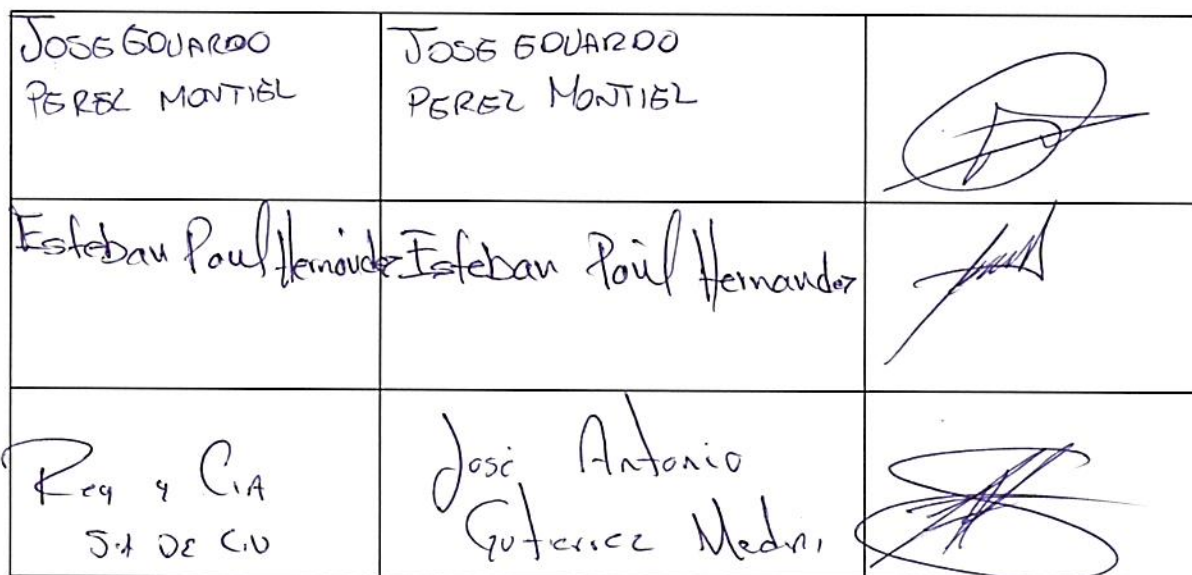 JOSE EDUARDO
PEREZ MONTIEL
JOSE EDUARDO
PEREZ MONTIEL
Esteban Paul Hernandez
Esteban Paúl Hernandez
y CIA
S.A DE C.V
José Antonio
Gutierrez